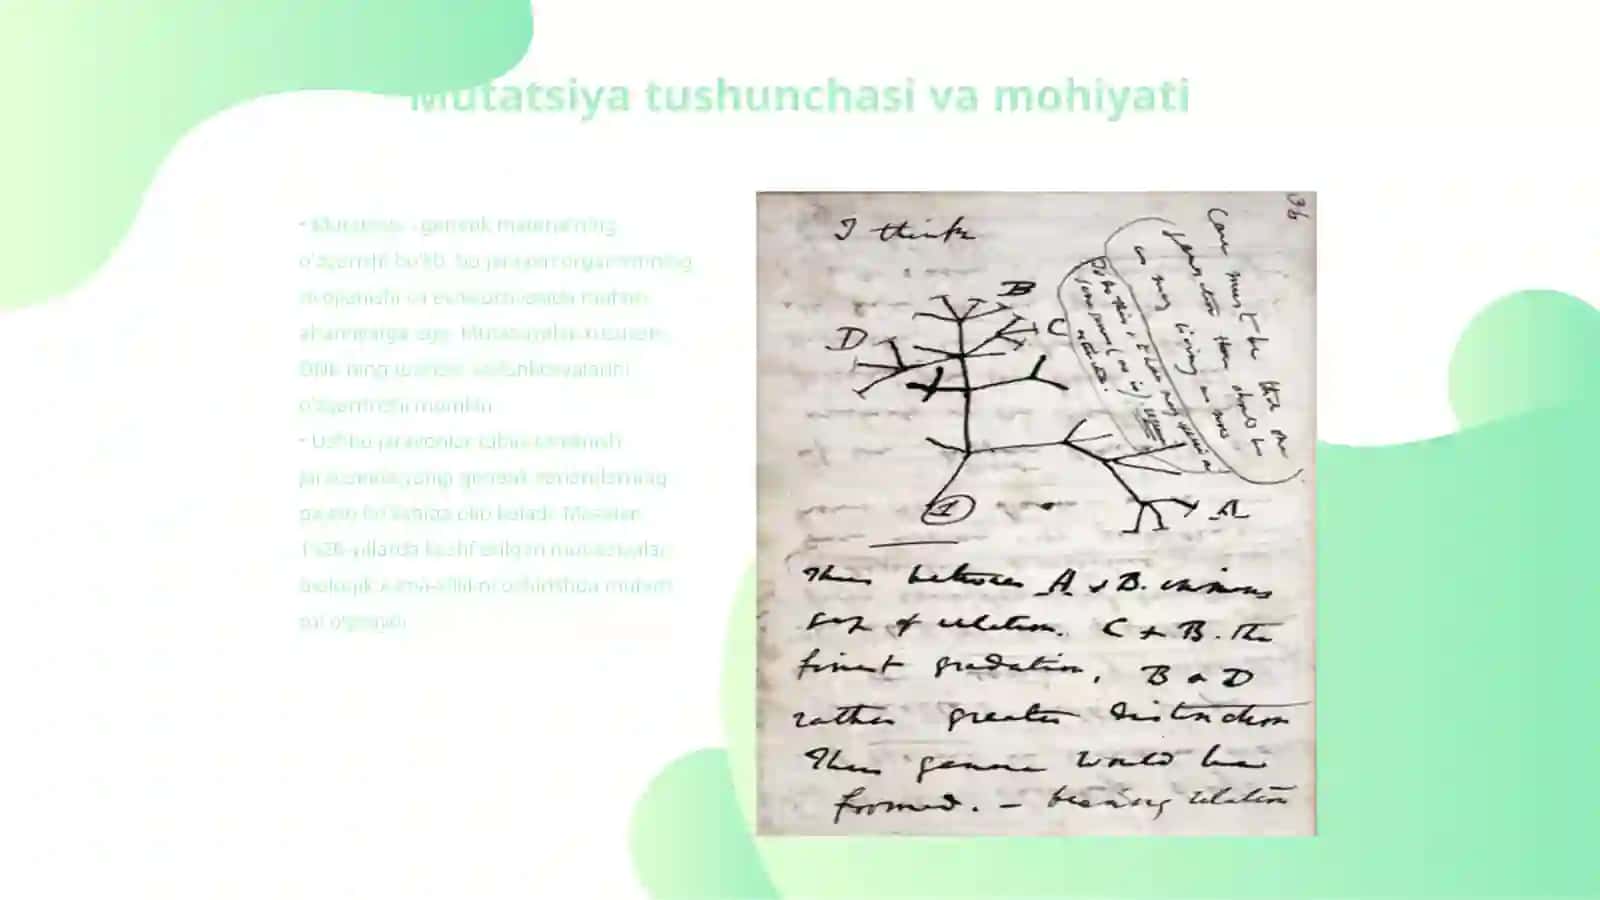 Mutatsiya tushunchasi va mohiyati
• Mutatsiya - genetik materialning
o'zgarishi bo'lib, bu jarayon organizmning
rivojlanishi va evolyutsiyasida muhim
ahamiyatga ega. Mutatsiyalar, xususan,
DNK ning tuzilishi va funktsiyalarini
o'zgartirishi mumkin.
• Ushbu jarayonlar tabiiy tanlanish
jarayonida yangi genetik variantlarning
paydo bo'lishiga olib keladi. Masalan,
kashf etilgan mutatsiyalar
biologik xilma-xillikni oshirishda muhim
rol o'ynaydi.
36
I think
B
D
C
Case must be that one
generation then should be
as many living as now
A
1
Thus between A & B. immens
gap of relation. C & B. The
finest gradation, B & D
rather greater distinction
Thus genera would be
formed. — bearing relation